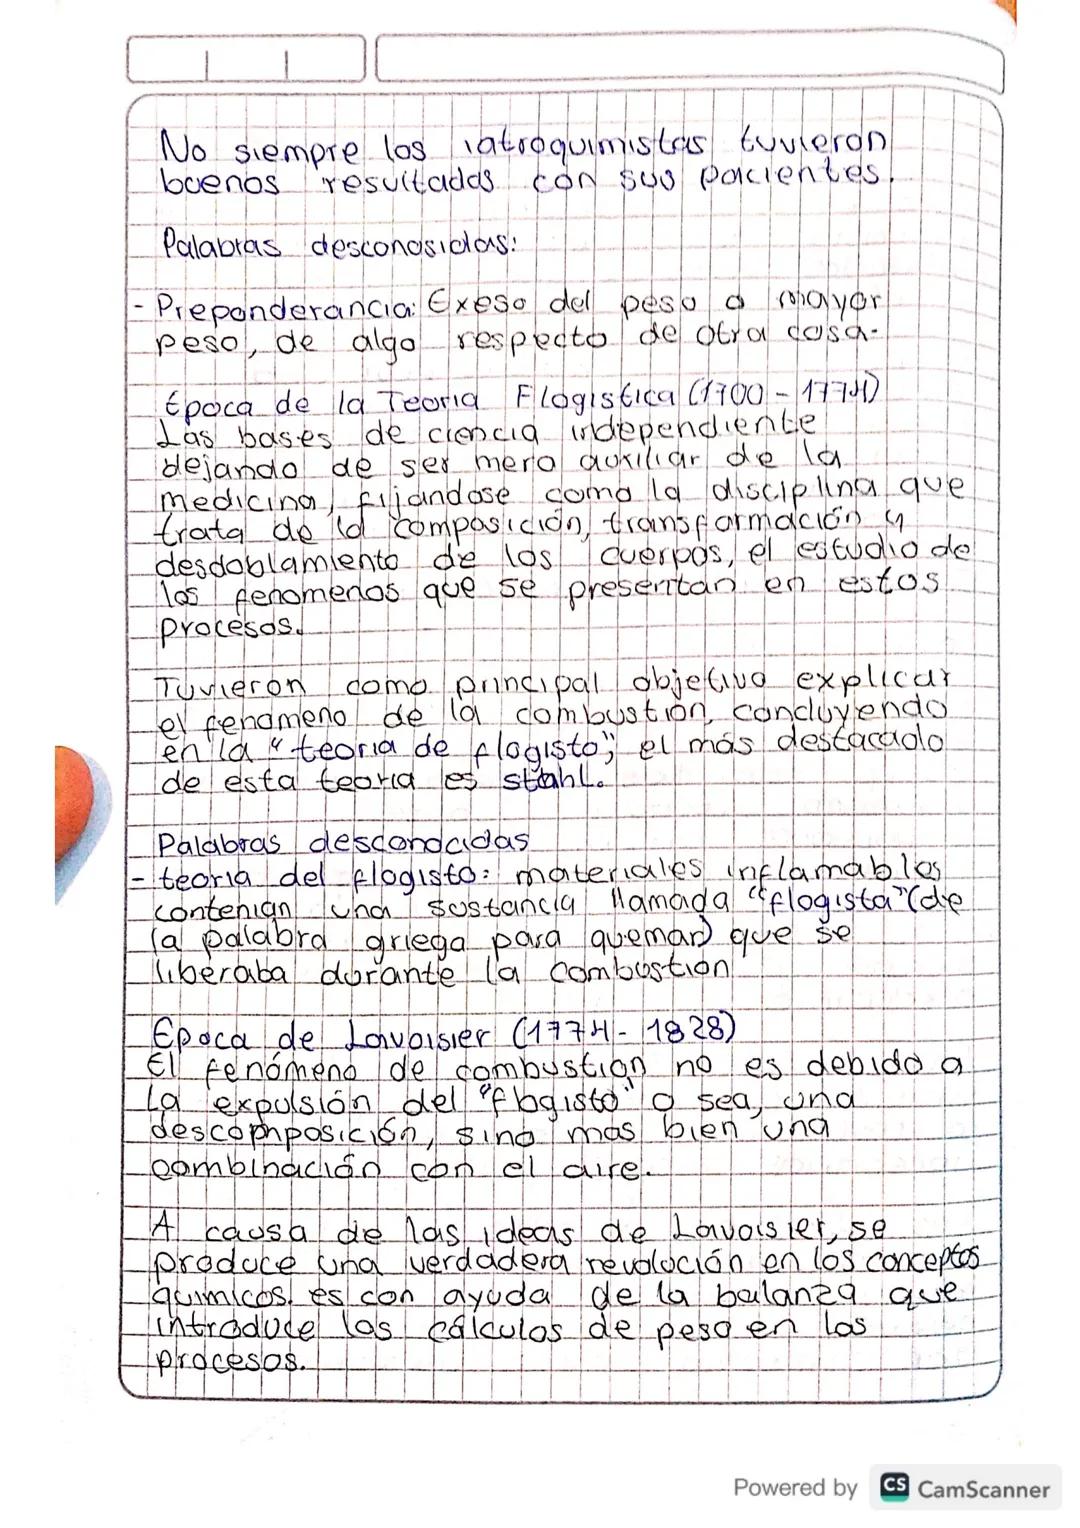 No siempre los iatroquimistas tuvieron
buenos resultados con sus pacientes.
Palabras desconosidas:
- Preponderancia: Exeso del peso o mayor
peso, de algo respecto de otra cosa.
Epoca de la Teoria Flogistica (1700 - 1774)
Las bases de ciencia independiente
dejando de ser mero auxiliar de la
medicina, fijandose como la disciplina que
trata de la composición, transformación y
desdoblamiento de los cuerpos, el estudio de
los fenomenos que se presentan en estos
procesos.
Tuvieron como principal objetivo explicar
el fenomeno de la combustion, concluyendo
en la "teoria de flogisto"; el más destacado
de esta teoria es stahl.
Palabras desconocidas
- teoria del flogisto: materiales inflamables
contenian una sustancia llamada "flogista" (de
la palabra griega para quemar) que se
liberaba durante la combustion
Epoca de Lavoisier (1774- 1828)
El fenómeno de combustion no es debido a
La expulsión del "flogisto" o sea, una
descomposición, sino mas bien una
combinación con el aire.
A causa de las ideas de Lavoisier, se
produce una verdadera revolución en los conceptos
quimicos. es con ayuda de la balanza que
introduce los cálculos de peso en los
procesos.
Powered by CS CamScanner